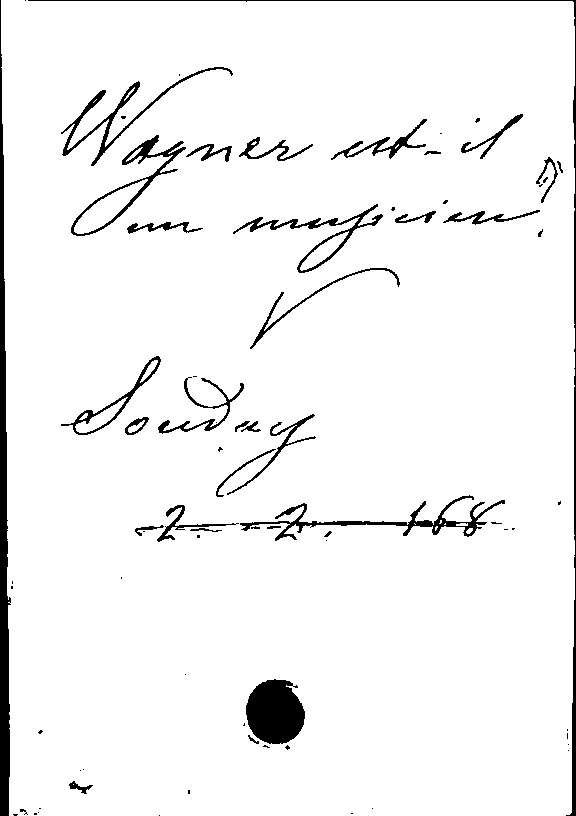 Wagner est-il
un musicien?
V
Souday
2. 2. 168